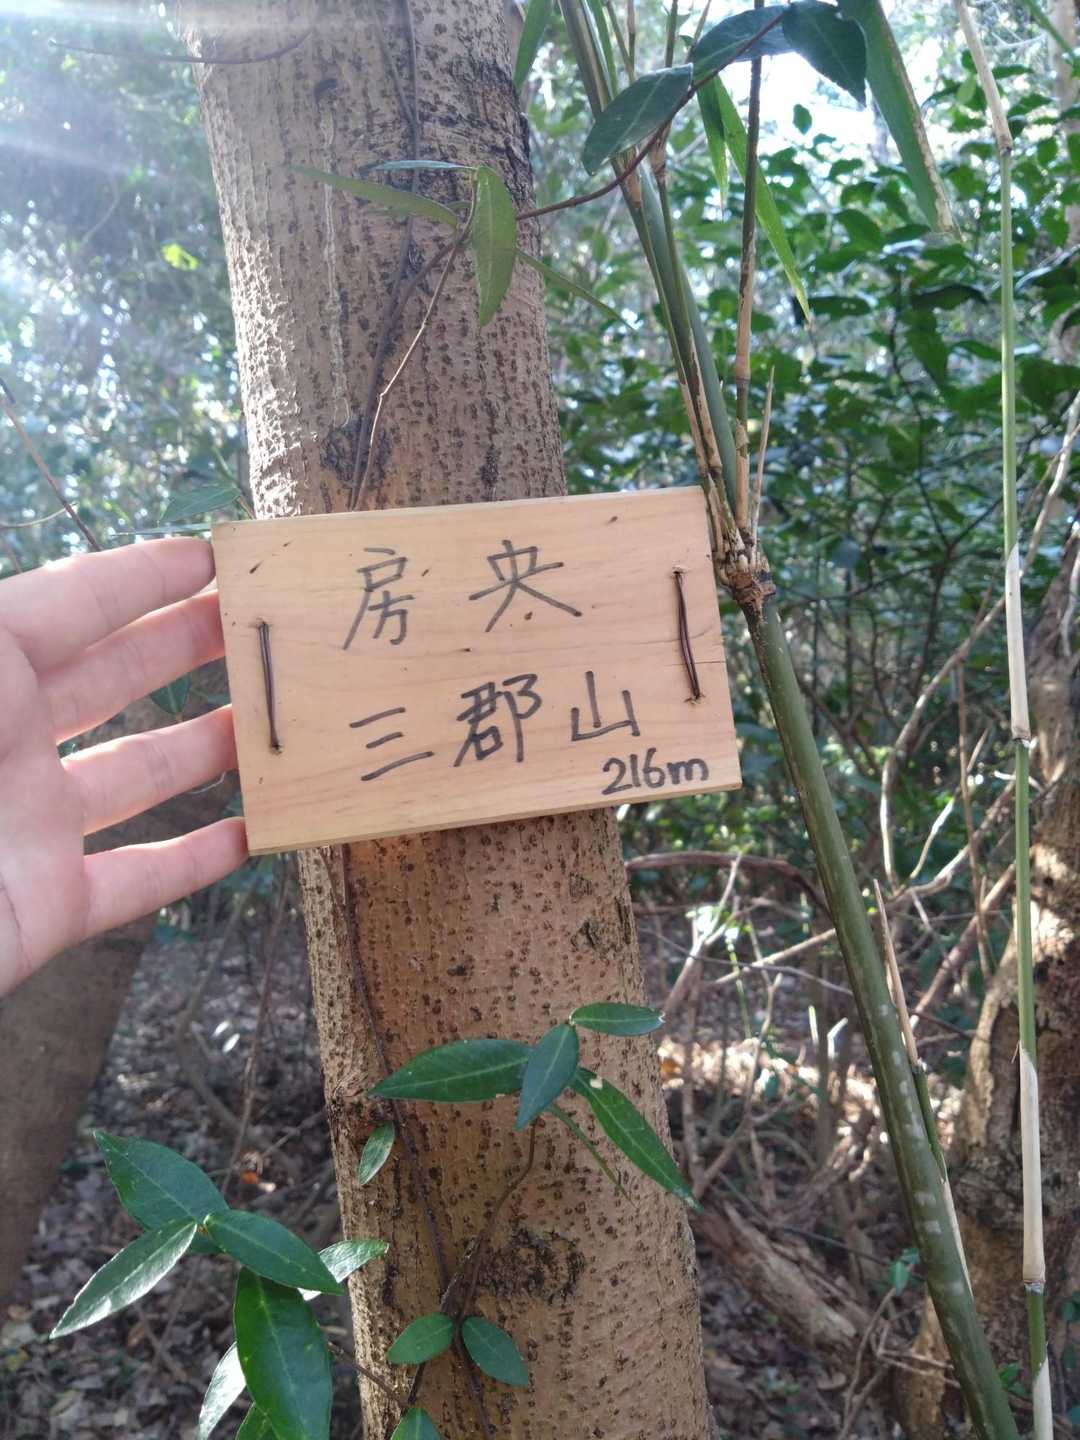 房央
三郡山
216m